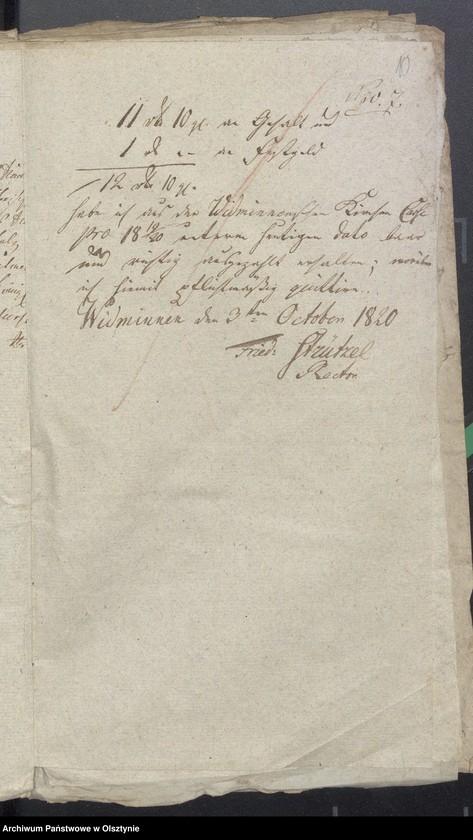 10
Nro. 7.
11 rtl 10 gl. an Gehalt und
1 rtl – – an
12 rtl 10 gl.
habe ich aus der Widminnenschen Kirchen Casse
pro 18 19/20 unterm heutigen dato baar
und richtig ausgezahlt erhalten; worüber
ich hiemit pflichtmäßig quittire.
Widminnen den 3ten October 1820
Fried: Strützel
Rector
Archiwum Państwowe w Olsztynie